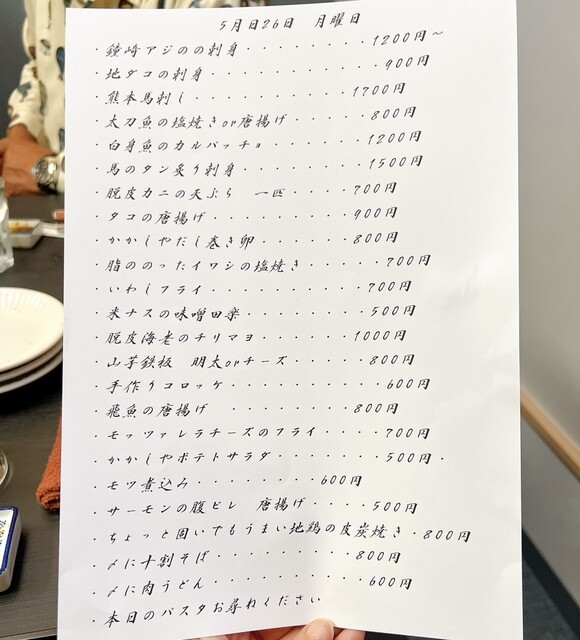 5月日26日 月曜日
・鐘崎アジのの刺身・・・・・・・・1200円～
・地ダコの刺身・・・・・・・・・・900円
・熊本馬刺し・・・・・・・・・・1700円
・太刀魚の塩焼きor唐揚げ・・・・・800円
・白身魚のカルパッチョ・・・・・・1200円
・馬のタン炙り刺身・・・・・・・・1500円
・脱皮カニの天ぷら 一匹・・・・・700円
・タコの唐揚げ・・・・・・・・・900円
・かかしやだし巻き卵・・・・・・・800円
・脂ののったイワシの塩焼き・・・・・700円
・いわしフライ・・・・・・・・・・700円
・米ナスの味噌田楽・・・・・・・・500円
・脱皮海老のチリマヨ・・・・・・・1000円
・山芋鉄板 明太orチーズ・・・・・800円
・手作りコロッケ・・・・・・・・・・600円
・飛魚の唐揚げ ・・・・・・・・800円
・モッツァレラチーズのフライ・・・・700円
・かかしやポテトサラダ・・・・・・・500円・
・モツ煮込み・・・・・・・・600円
・サーモンの腹ビレ 唐揚げ・・・・500円
・ちょっと固いでもうまい地鶏の皮炭焼き・800円
・〆に十割そば・・・・・・・・・800円
・〆に肉うどん・・・・・・・・・・600円
・本日のパスタお尋ねください